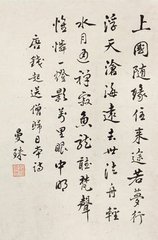 上國随緣住来途若夢行
浮天滄海遠去世法舟輕
水月通禪寂魚龍聽梵聲
惟憐一燈影萬里眼中明
唐錢起送僧歸日本詩
曼殊